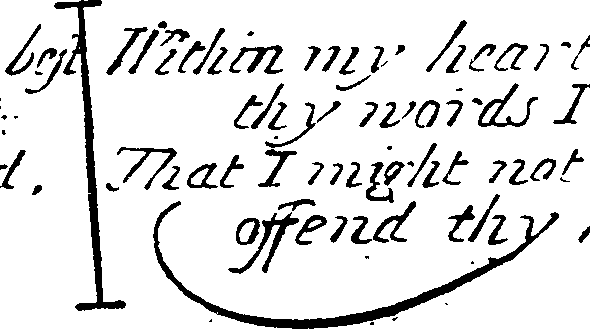 best Within my heart
thy words I
d. That I might not
offend thy